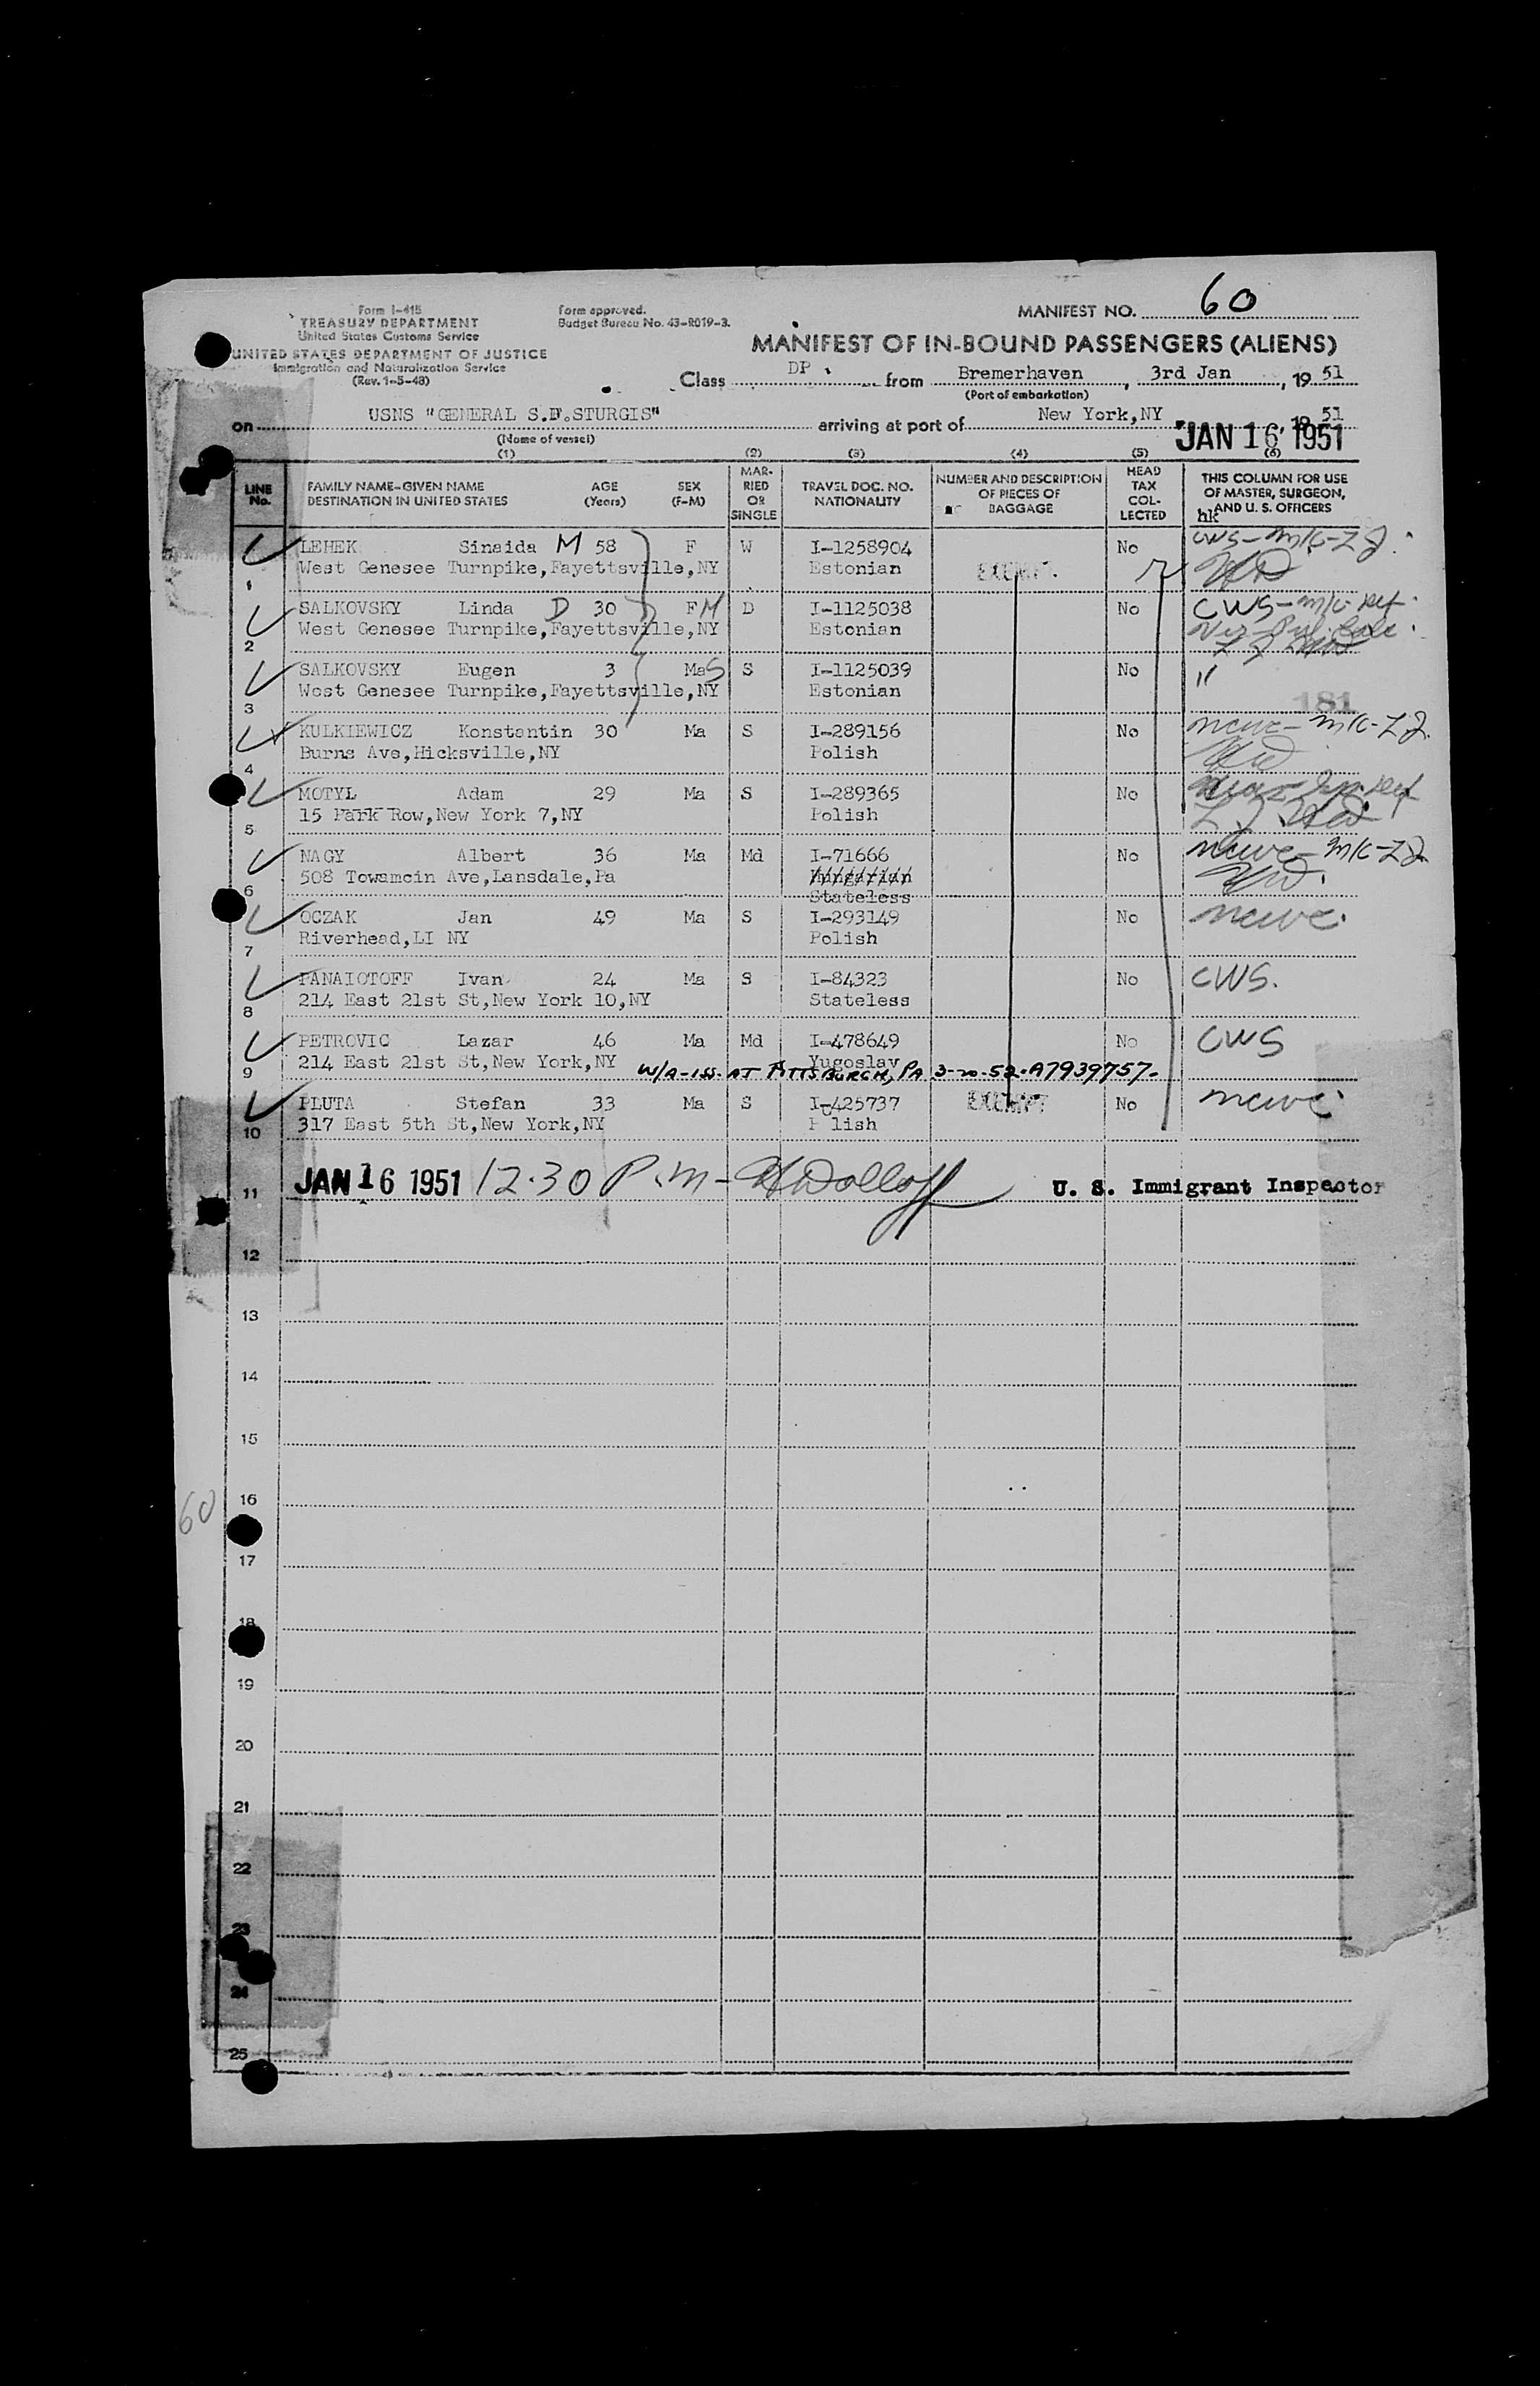 Form I-415
TREASURY DEPARTMENT
United States Customs Service
UNITED STATES DEPARTMENT OF JUSTICE
Immigration and Naturalization Service
(Rev. 1-5-48)
Form approved.
Budget Bureau No. 43-R019-3.
MANIFEST NO. 60
MANIFEST OF IN-BOUND PASSENGERS (ALIENS)
Class DP from Bremerhaven, 3rd Jan, 19 51
(Port of embarkation)
on USNS "GENERAL S.D.STURGIS" arriving at port of New York,NY, 19 51
(Name of vessel)
JAN 16 1951
(1) (2) (3) (4) (5) (6)
LINE No. FAMILY NAME-GIVEN NAME DESTINATION IN UNITED STATES AGE (Years) SEX (F-M) MARRIED OR SINGLE TRAVEL DOC. NO. NATIONALITY NUMBER AND DESCRIPTION OF PIECES OF BAGGAGE HEAD TAX COLLECTED THIS COLUMN FOR USE OF MASTER, SURGEON, AND U. S. OFFICERS
hk
LEHEK Sinaida M 58 F W I-1258904 No CWS-M/C-LJ.
1 West Genesee Turnpike,Fayettsville,NY Estonian EXEMPT HWD
SALKOVSKY Linda D 30 F M D I-1125038 No CWS-M/C Ref.
2 West Genesee Turnpike,Fayettsville,NY Estonian
SALKOVSKY Eugen 3 Ma S S I-1125039 No "
3 West Genesee Turnpike,Fayettsville,NY Estonian 181
KULKIEWICZ Konstantin 30 Ma S I-289156 No ncwc-M/C-LJ.
4 Burns Ave,Hicksville,NY Polish HWD
MOTYL Adam 29 Ma S I-289365 No
5 15 Park Row,New York 7,NY Polish
NAGY Albert 36 Ma Md I-71666 No ncwc-M/C-LJ.
6 508 Towamcin Ave,Lansdale,Pa Hungarian HWD.
Stateless
OCZAK Jan 49 Ma S I-293149 No ncwc.
7 Riverhead,LI NY Polish
PANAIOTOFF Ivan 24 Ma S I-84323 No CWS.
8 214 East 21st St,New York 10,NY Stateless
PETROVIC Lazar 46 Ma Md I-478649 No CWS
9 214 East 21st St,New York,NY Yugoslav
W/A-ISS-AT PITTSBURGH, PA 3-20-52-A7939757-
PLUTA Stefan 33 Ma S I-425737 EXEMPT No ncwc
10 317 East 5th St,New York,NY P lish
11 JAN 16 1951 12.30 P.M- HWDolloff U. S. Immigrant Inspector
12
13
14
15
16
60
17
18
19
20
21
22
23
24
25